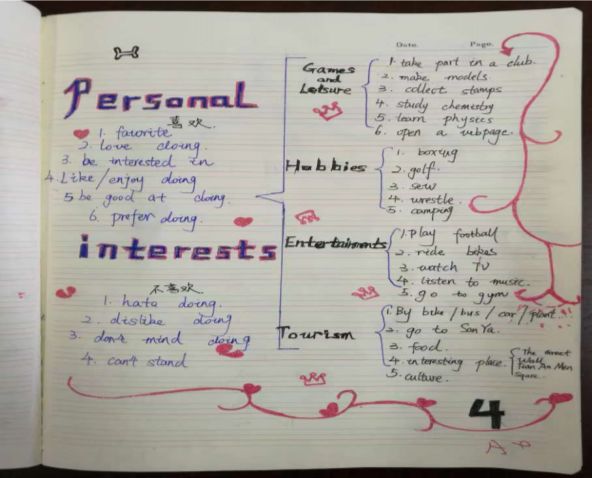 Date. Page.
Personal
喜欢.
1. favorite
2. love doing.
3. be interested in
4. Like/enjoy doing
5 be good at doing.
6. prefer doing.
interests
不喜欢
1. hate doing.
2. dislike doing
3. don't mind doing
4. can't stand
Games and Leisure
1. take part in a club.
2. make models.
3. collect stamps
4. study chemistry
5. learn physics
6. open a webpage.
Hobbies
1. boxing
2. golf.
3. sew
4. wrestle.
5. camping
Entertaiments
1. Play football
2. ride bikes
3. watch TV
4. listen to music.
5. go to gym
Tourism
1. By bike/bus/car/plant.
2. go to SanYa.
3. food.
4. interesting place.
The
Wall
Tian An Men
Sqare.
5. culture.
4